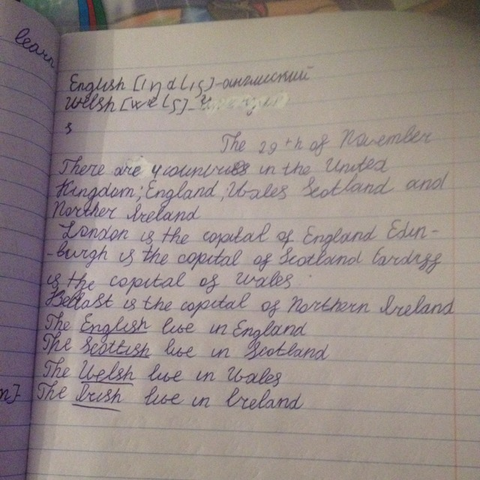 learn
English [ıŋdlış]-английский
Welsh [welş]
s
The 29th of November
There are 4 countries in the United
Kingdom; England, Wales Scotland and
Norther Ireland
London is the capital of England Edin-
-burgh is the capital of Scotland Cardiff
is the capital of Wales.
Belfast is the capital of Northern Ireland
The English live in England
The Scottish live in Scotland
The Welsh live in Wales
The Irish live in Ireland